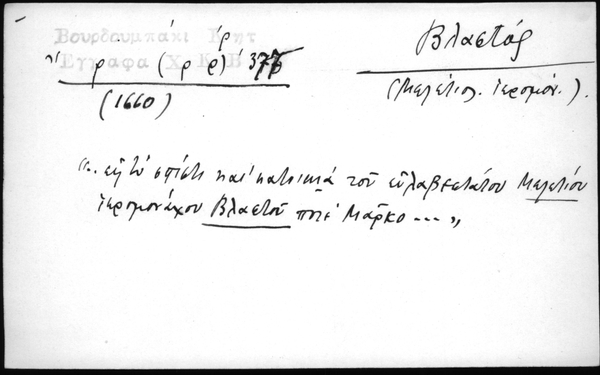 Βουρδουμπάκι Κρητ
Έγγραφα (Χ. Κ. Β 376
(1660)
Βλαστός
(Μελέτιος ἱερομόν.).
"... εἰς τὸ σπίτι καὶ κατοικιά τοῦ εὐλαβεστάτου Μελετίου
ἱερομονάχου Βλαστοῦ ποτὲ Μάρκο ... "